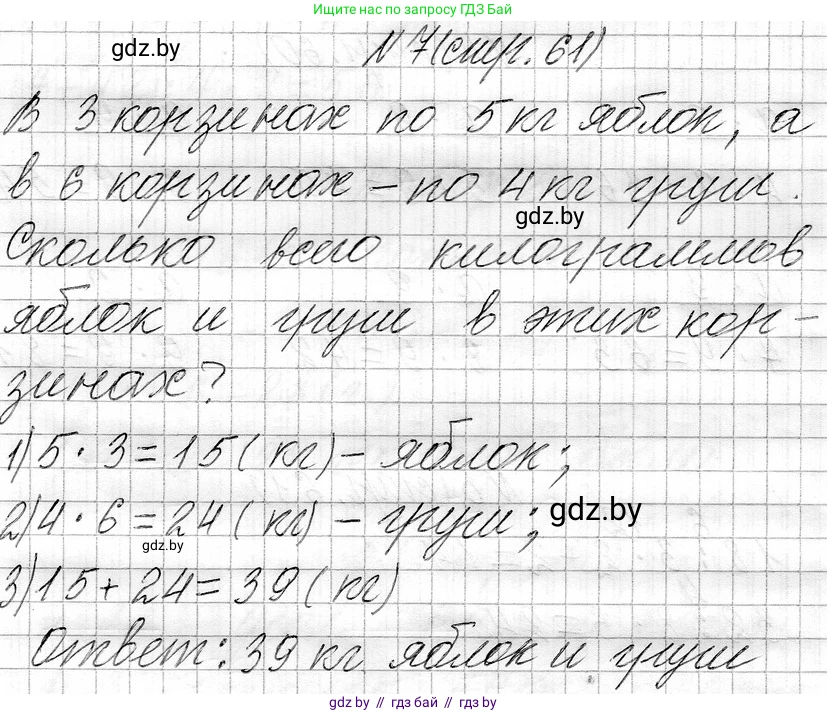 Ищите нас по запросу ГДЗ Бай
gdz.by
N 7 (стр. 61)
В 3 корзинах по 5 кг яблок, а
в 6 корзинах – по 4 кг груш.
gdz.by
Сколько всего килограммов
яблок и груш в этих кор-
зинах?
1) 5 · 3 = 15 (кг) – яблок;
2) 4 · 6 = 24 (кг) – груш;
gdz.by
gdz.by
3) 15 + 24 = 39 (кг)
Ответ: 39 кг яблок и груш
gdz.by // гдз бай // gdz.by